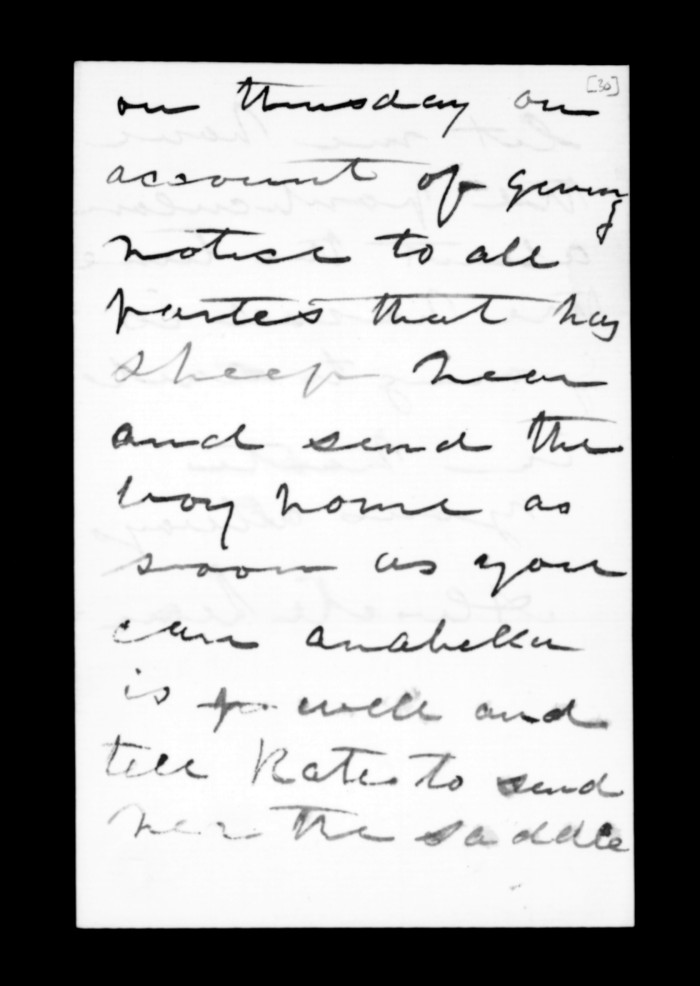 [30]
on thusday on
account of giving
notice to all
partes that has
sheep hear
and send the
boy home as
soon as you
can anabeka
is well and
tell Kate to send
her the saddle